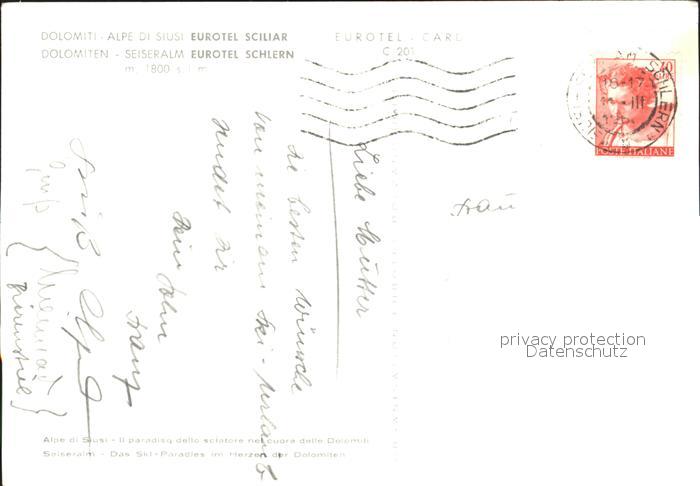 DOLOMITI - ALPE DI SIUSI EUROTEL SCILIAR
DOLOMITEN - SEISERALM EUROTEL SCHLERN
m. 1800 s. l. m.
EUROTEL - CARD
C 201
10
SCHLERN
18-17
III
POSTE ITALIANE
Liebe Mutter
die besten Wünsche
von meinem Ski-Urlaub
sendet Dir
Dein Sohn
Franz
Frau
privacy protection
Datenschutz
Alpe di Siusi - Il paradiso dello sciatore nel cuore delle Dolomiti
Seiseralm - Das Ski-Paradies im Herzen der Dolomiten